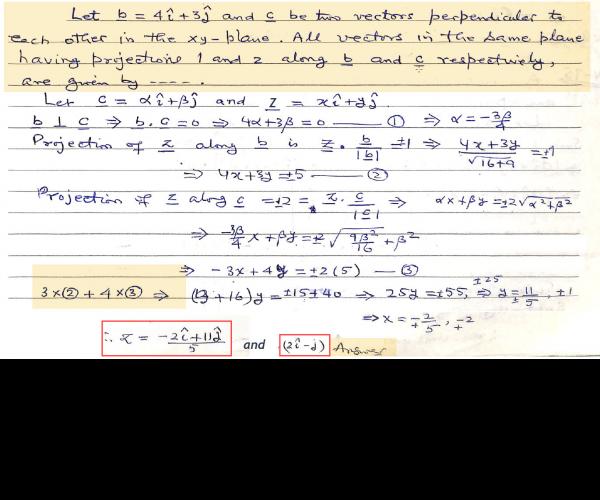 Let b = 4î+3ĵ and c be two vectors perpendicular to
each other in the xy-plane. All vectors in the same plane
having projections 1 and 2 along b and c respectively,
are given by ----.
Let c = αî+βĵ and z = xî+yĵ.
b ⊥ c ⇒ b.c=0 ⇒ 4α+3β=0 —— ① ⇒ α = -3β/4
Projection of z along b is z . b/|b| = ±1 ⇒ (4x+3y)/√(16+9) = ±1
⇒ 4x+3y=±5 —— ②
Projection of z along c = ±2 = z . c/|c| ⇒ αx+βy=±2√(α²+β²)
⇒ -3β/4 x+βy=±2 √(9β²/16 + β²)
⇒ -3x+4y = ±2(5) —— ③
3×②+4×③ ⇒ (9+16)y=±15±40 ⇒ 25y=±55, ±25 ⇒ y=±11/5, ±1
⇒ x = ∓2/5, ∓2
∴ z = (-2î+11ĵ)/5 and (2î-ĵ) Answer